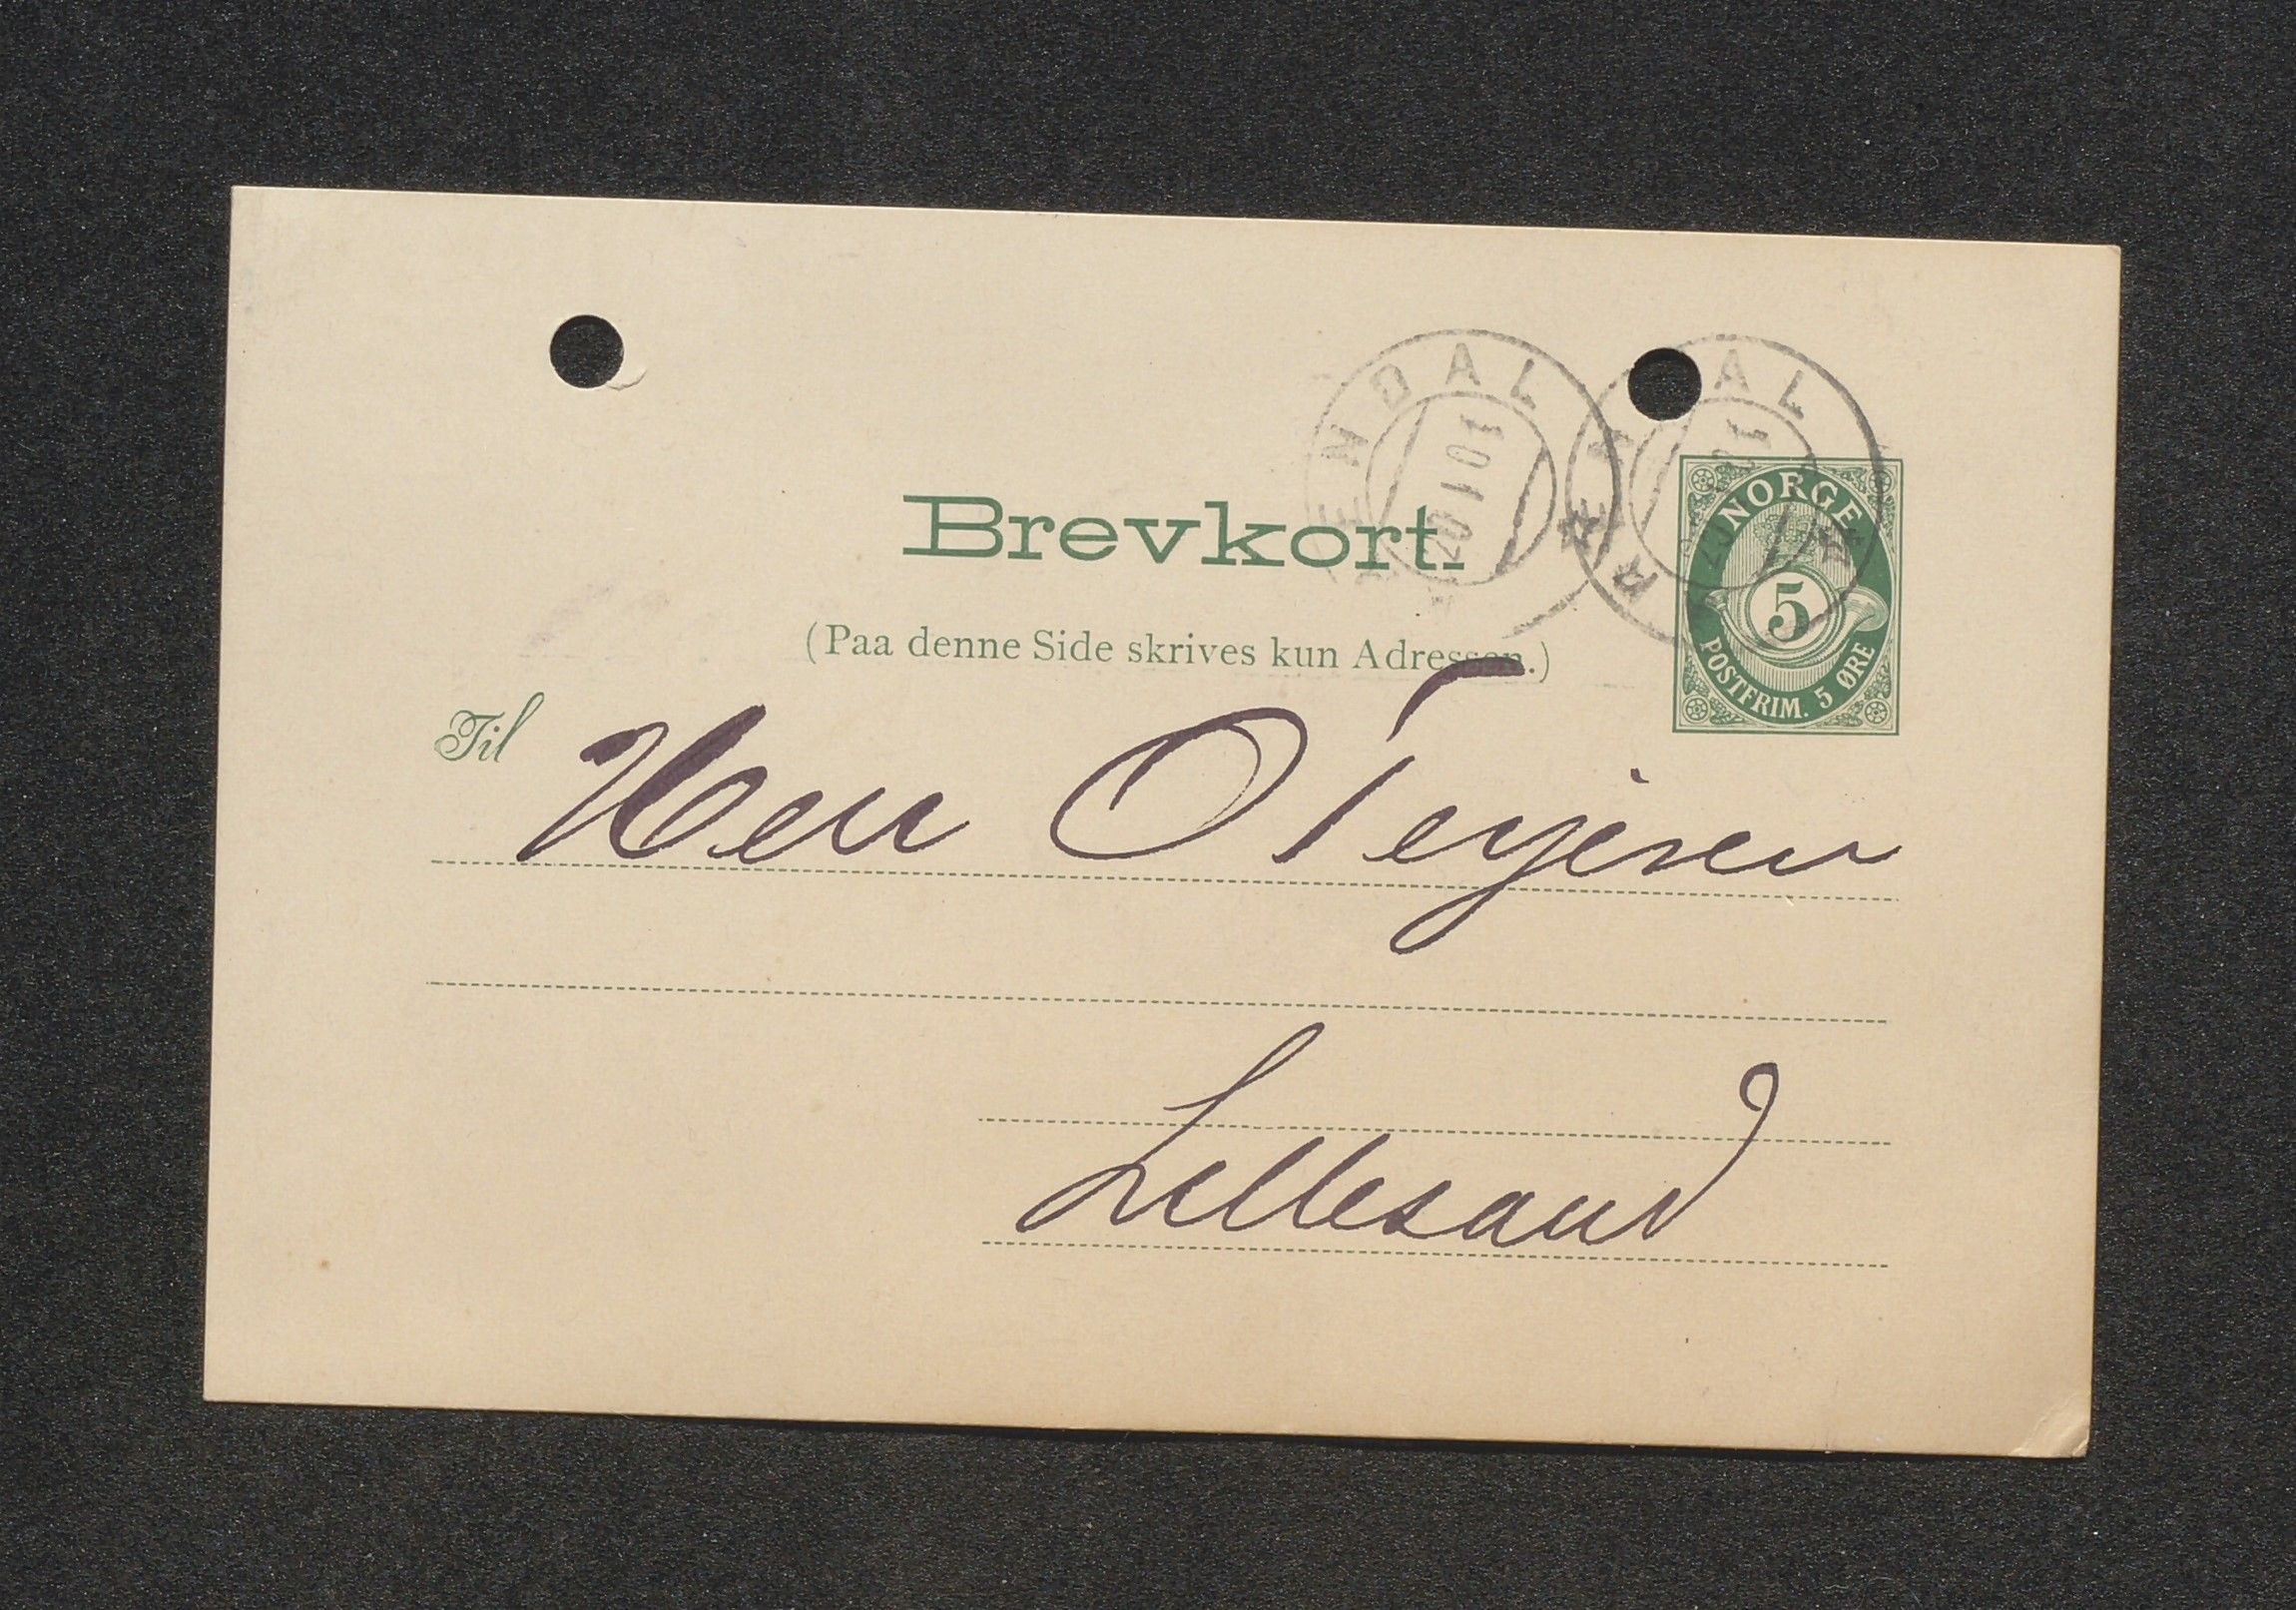 ENDAL
20 1 07
AL
NORGE
5
POSTFRIM. 5 ØRE
Brevkort.
(Paa denne Side skrives kun Adressen.)
Til Herr O Terjesen
Lillesand